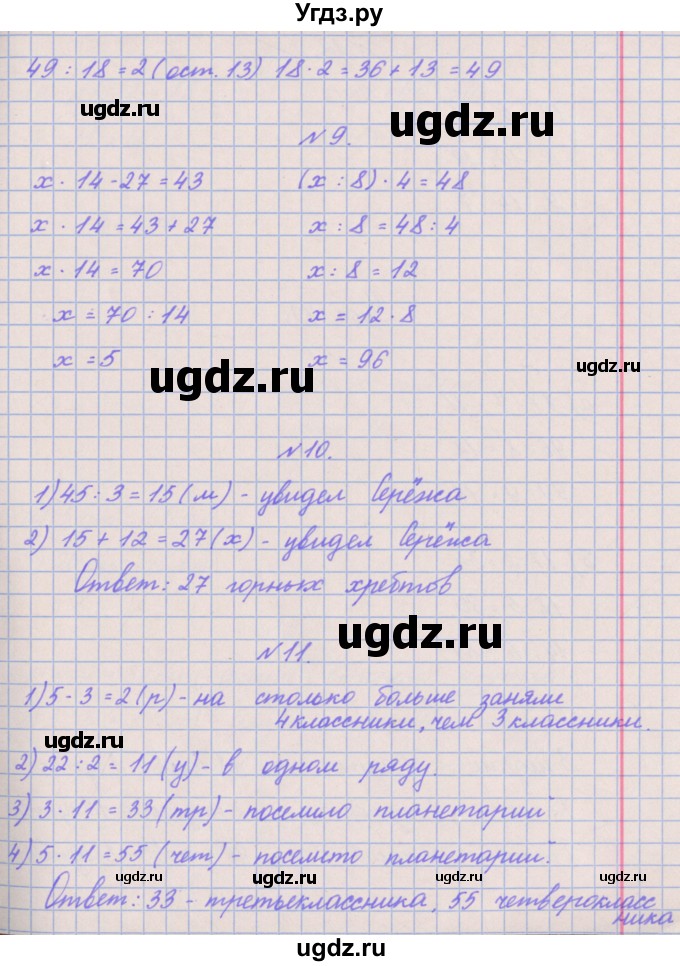 Угдз.ру
49 : 18 = 2 (ост. 13) 18 · 2 = 36 + 13 = 49
ugdz.ru ugdz.ru
№ 9.
x · 14 - 27 = 43 (x : 8) · 4 = 48
x · 14 = 43 + 27 x : 8 = 48 : 4
x · 14 = 70 x : 8 = 12
x = 70 : 14 x = 12 · 8
x = 5 x = 96
ugdz.ru ugdz.ru
№ 10.
1) 45 : 3 = 15 (м) - увидел Серёжа
2) 15 + 12 = 27 (х) - увидел Серёжа
Ответ: 27 горных хребтов
ugdz.ru
№ 11.
1) 5 - 3 = 2 (р) - на столько больше заняли
4 классники, чем 3 классники.
ugdz.ru
2) 22 : 2 = 11 (у) - в одном ряду.
3) 3 · 11 = 33 (тр) - посетило планетарий
4) 5 · 11 = 55 (чет) - посетито планетарий.
ugdz.ru ugdz.ru ugdz.ru
Ответ: 33 - третьеклассника, 55 четверокласс
ника
ugdz.ru